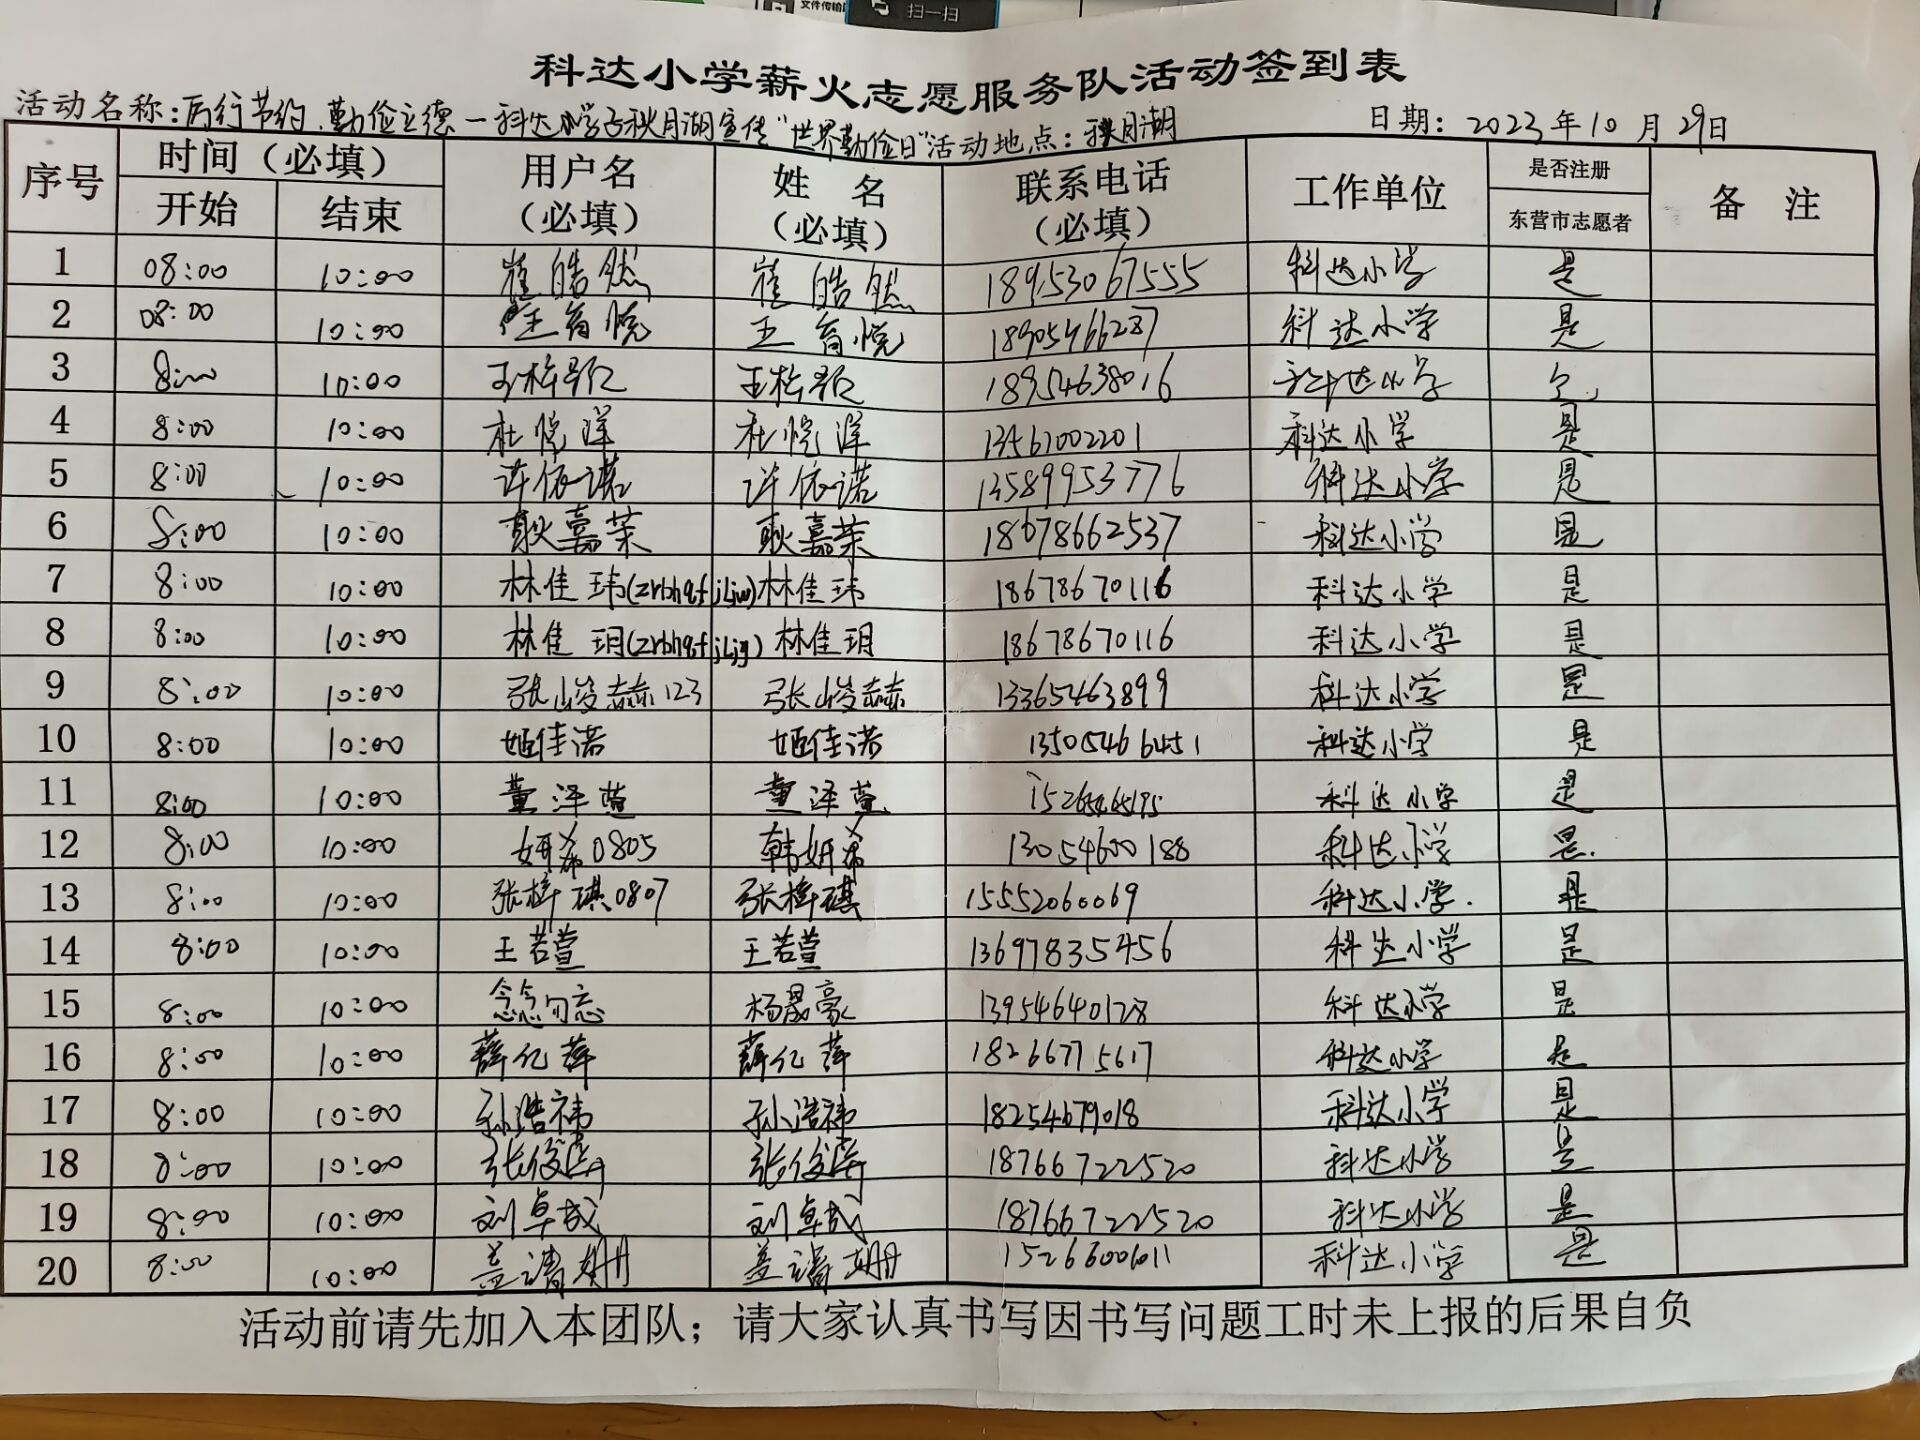 文件传输
扫一扫
科达小学薪火志愿服务队活动签到表
活动名称：厉行节约、勤俭立德—科达小学子秋月湖宣传“世界勤俭日” 活动地点：秋月湖 日期：2023年10月29日
序号 时间（必填） 用户名（必填） 姓 名（必填） 联系电话（必填） 工作单位 是否注册 备 注
开始 结束 东营市志愿者
1 08:00 10:00 崔皓然 崔皓然 18953067555 科达小学 是
2 08:00 10:00 王育悦 王育悦 18905466287 科达小学 是
3 8:00 10:00 18954638016 科达小学
4 8:00 10:00 杜悦洋 杜悦洋 13561002201 科达小学 是
5 8:00 10:00 许依诺 许依诺 13589953776 科达小学 是
6 8:00 10:00 耿嘉茉 耿嘉茉 18678662537 科达小学 是
7 8:00 10:00 林佳玮(zrbhqfjljw) 林佳玮 18678670116 科达小学 是
8 8:00 10:00 林佳玥(zrbhqfjljy) 林佳玥 18678670116 科达小学 是
9 8:00 10:00 张峻赫123 张峻赫 13365463899 科达小学 是
10 8:00 10:00 姬佳诺 姬佳诺 13505466451 科达小学 是
11 8:00 10:00 董泽萱 董泽萱 科达小学 是
12 8:00 10:00 妍希0805 韩妍希 13054600188 科达小学 是.
13 8:00 10:00 张梓琪0807 张梓琪 15552060069 科达小学. 是
14 8:00 10:00 王若萱 王若萱 13697835456 科达小学 是
15 8:00 10:00 念念勿忘 杨晟豪 13954640128 科达小学 是
16 8:00 10:00 薛亿萍 薛亿萍 18266775617 科达小学 是
17 8:00 10:00 孙浩祎 孙浩祎 18254679018 科达小学 是
18 8:00 10:00 张俊涛 张俊涛 18766722520 科达小学 是
19 8:00 10:00 刘卓成 刘卓成 18766722520 科达小学 是
20 8:00 10:00 盖 盖 15266006011 科达小学 是
活动前请先加入本团队；请大家认真书写因书写问题工时未上报的后果自负